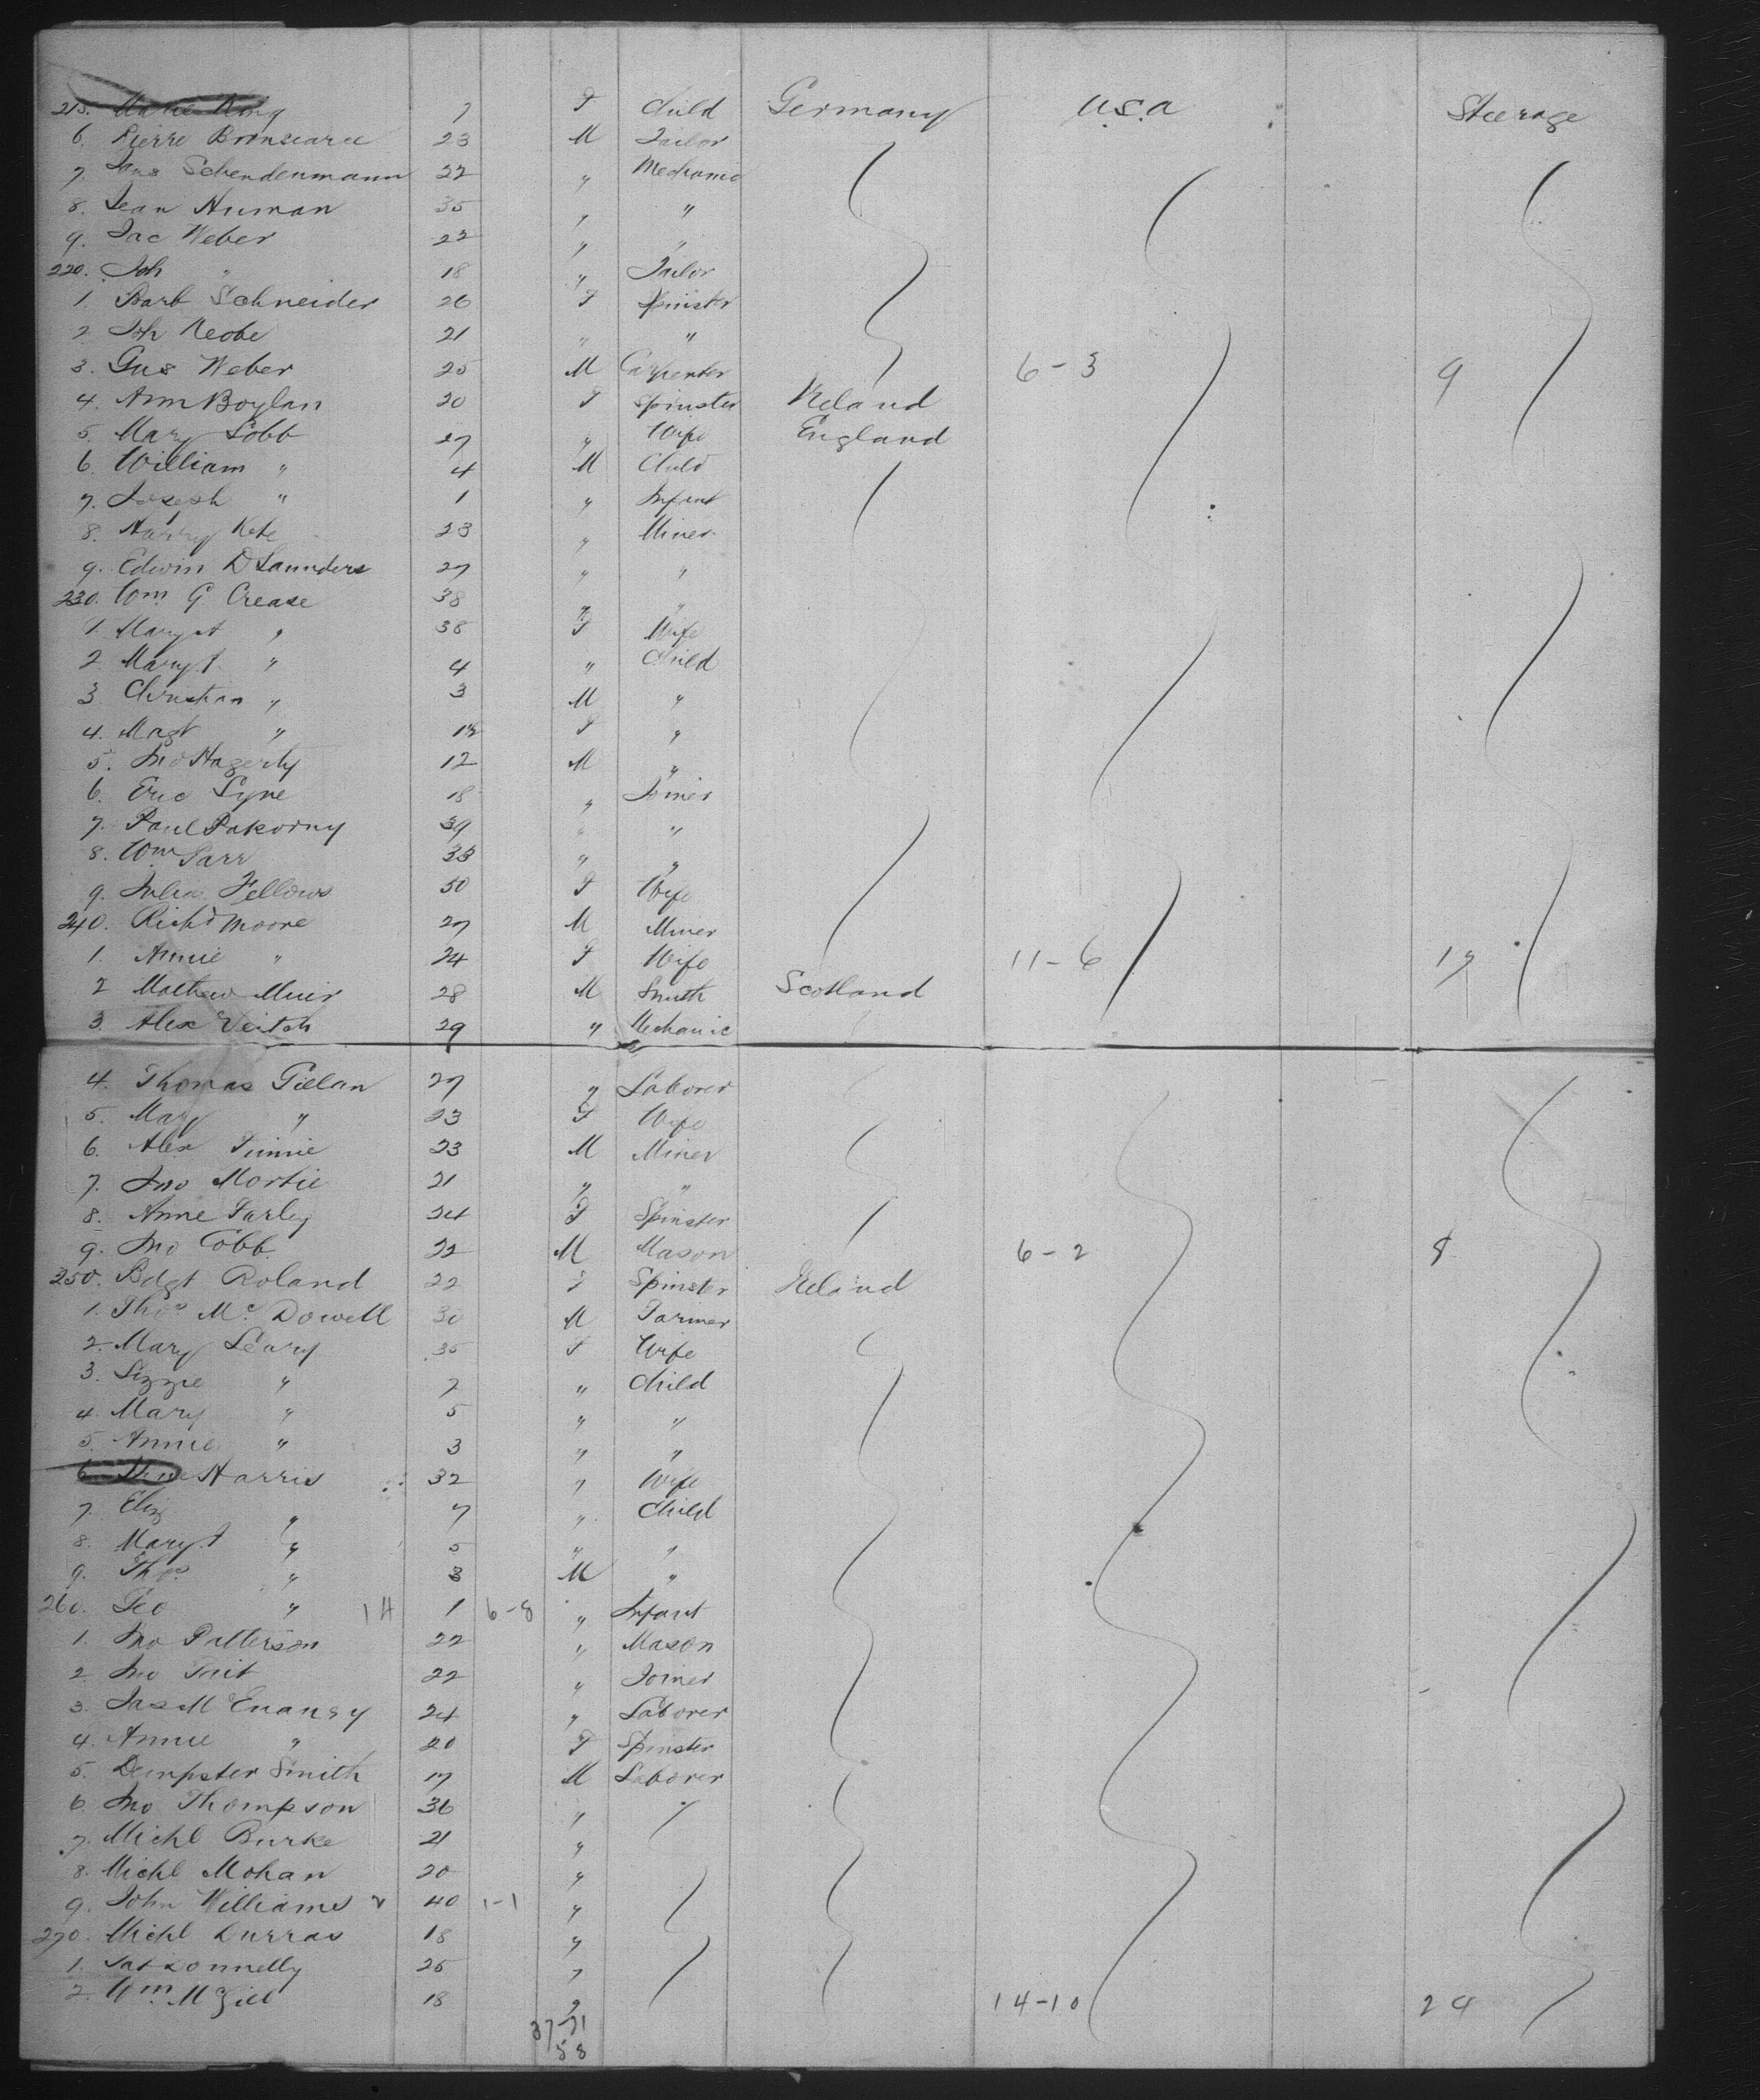 215. 7 F Child Germany U.S.a Steerage
6. Pierre 23 M Tailor
7. Schendenmann 22 " Mechanic
8. Jean Human 35 " "
9. Jac Weber 22 " "
220. Joh " 18 " Tailor
1. Barb Schneider 26 F Spinster
2. Joh 21 " "
3. Gus Weber 25 M Carpenter 6-3 9
4. Ann Boylan 20 F Spinster Ireland
5. Mary Cobb 27 " Wife England
6. William " 4 M Child
7. Joseph " 1 " Infant
8. Harry 23 " Miner
9. Edwin D Saunders 27 " "
230. Wm G Crease 38 " "
1. Mary A " 38 F Wife
2. Mary J " 4 " Child
3 Christian " 3 M "
4. Magt " F "
5. Jno Hagerty 12 M "
6. Eric Syne 18 " Joiner
7. Paul Pakorny 39 " "
8. Wm 33 " "
9. Julia Fellows 50 F Wife
240. Richd Moore 27 M Miner
1. Annie " 24 F Wife 11-6 17
2 Mathew Muir 28 M Smith Scotland
3. Alex Veitch 29 " Mechanic
4. Thomas Gillan 27 " Laborer
5. Mary " 23 F Wife
6. Alex 23 M Miner
7. Jno Mortie 21 " "
8. Anne Farley 24 F Spinster
9. Jno Cobb 22 M Mason 6-2 8
250. Bdgt Roland 22 F Spinster Ireland
1. Thos Mc Dowell 30 M Farmer
2. Mary Leary 35 F Wife
3. Lizzie " 7 " Child
4. Mary " 5 " "
5. Annie " 3 " "
6. Harris 32 " Wife
7. Eliz " 7 " Child
8. Mary J " 5 " "
9. Thos " 3 M "
260. Geo " 1H 1 6-8 " Infant
1. Jno Patterson 22 " Mason
2. Jno Tait 22 " Joiner
3. Jas 24 " Laborer
4. Annie " 20 F Spinster
5. Dempster Smith 17 M Laborer
6. Jno Thompson 36 " "
7. Michl Burke 21 "
8. Michl Mohan 20 "
9. John Williams 40 1-1 "
270. Michl Durras 18 "
1. Pat Donnelly 25 "
2. Wm McGill 18 " 14-10 24
37-21
58